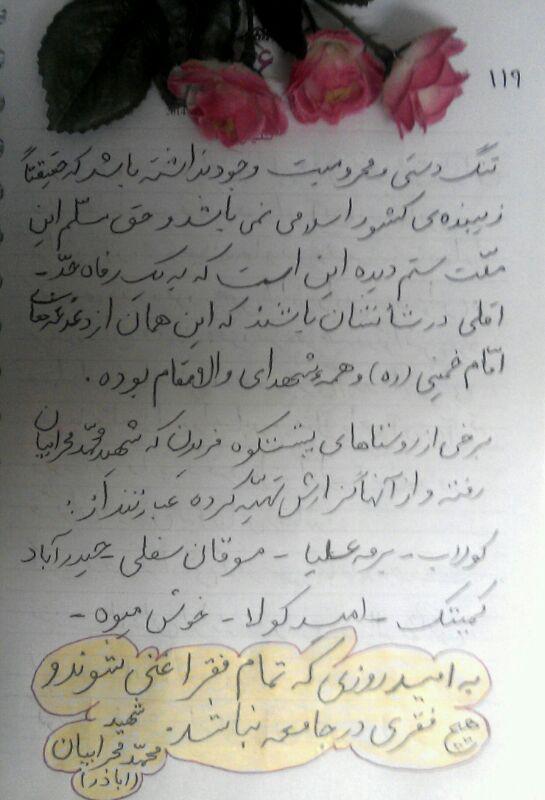 ۱۱۹
تنگ دستی و محرومیت وجود نداشته باشد که حقیقتاً
زیبنده‌ی کشور اسلامی نمی باشد و حق مسلّم این
ملّت ستم دیده این است که به یک رفاه حدّ -
اقلی در شأنشان باشند که این همان از دغدغه‌های
امّام خمینی (ره) و همه‌ی شهدای والامقام بوده.
برخی از روستاهای پشتکوه فریدن که شهید محمّد محرابیان
رفته و از آنها گزارش تهیّه کرده عبارتند از:
کولاب - برمه علیا - موقان سفلی - حیدرآباد
کمیتک - امید کولا - خوش میوه -
به امید روزی که تمام فقرا غنی شوند و
فقری در جامعه نباشد.
شهید
محمّد محرابیان
(اباذر)